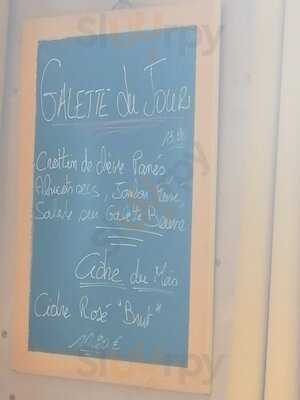 GALETTE du JOUR
13.90
Crottin de chèvre Panés
Abricots secs, Jambon Fumé
Salade sur Galette Beurre
Cidre du Mois
Cidre Rosé "Brut"
11.80 €
Sluurpy